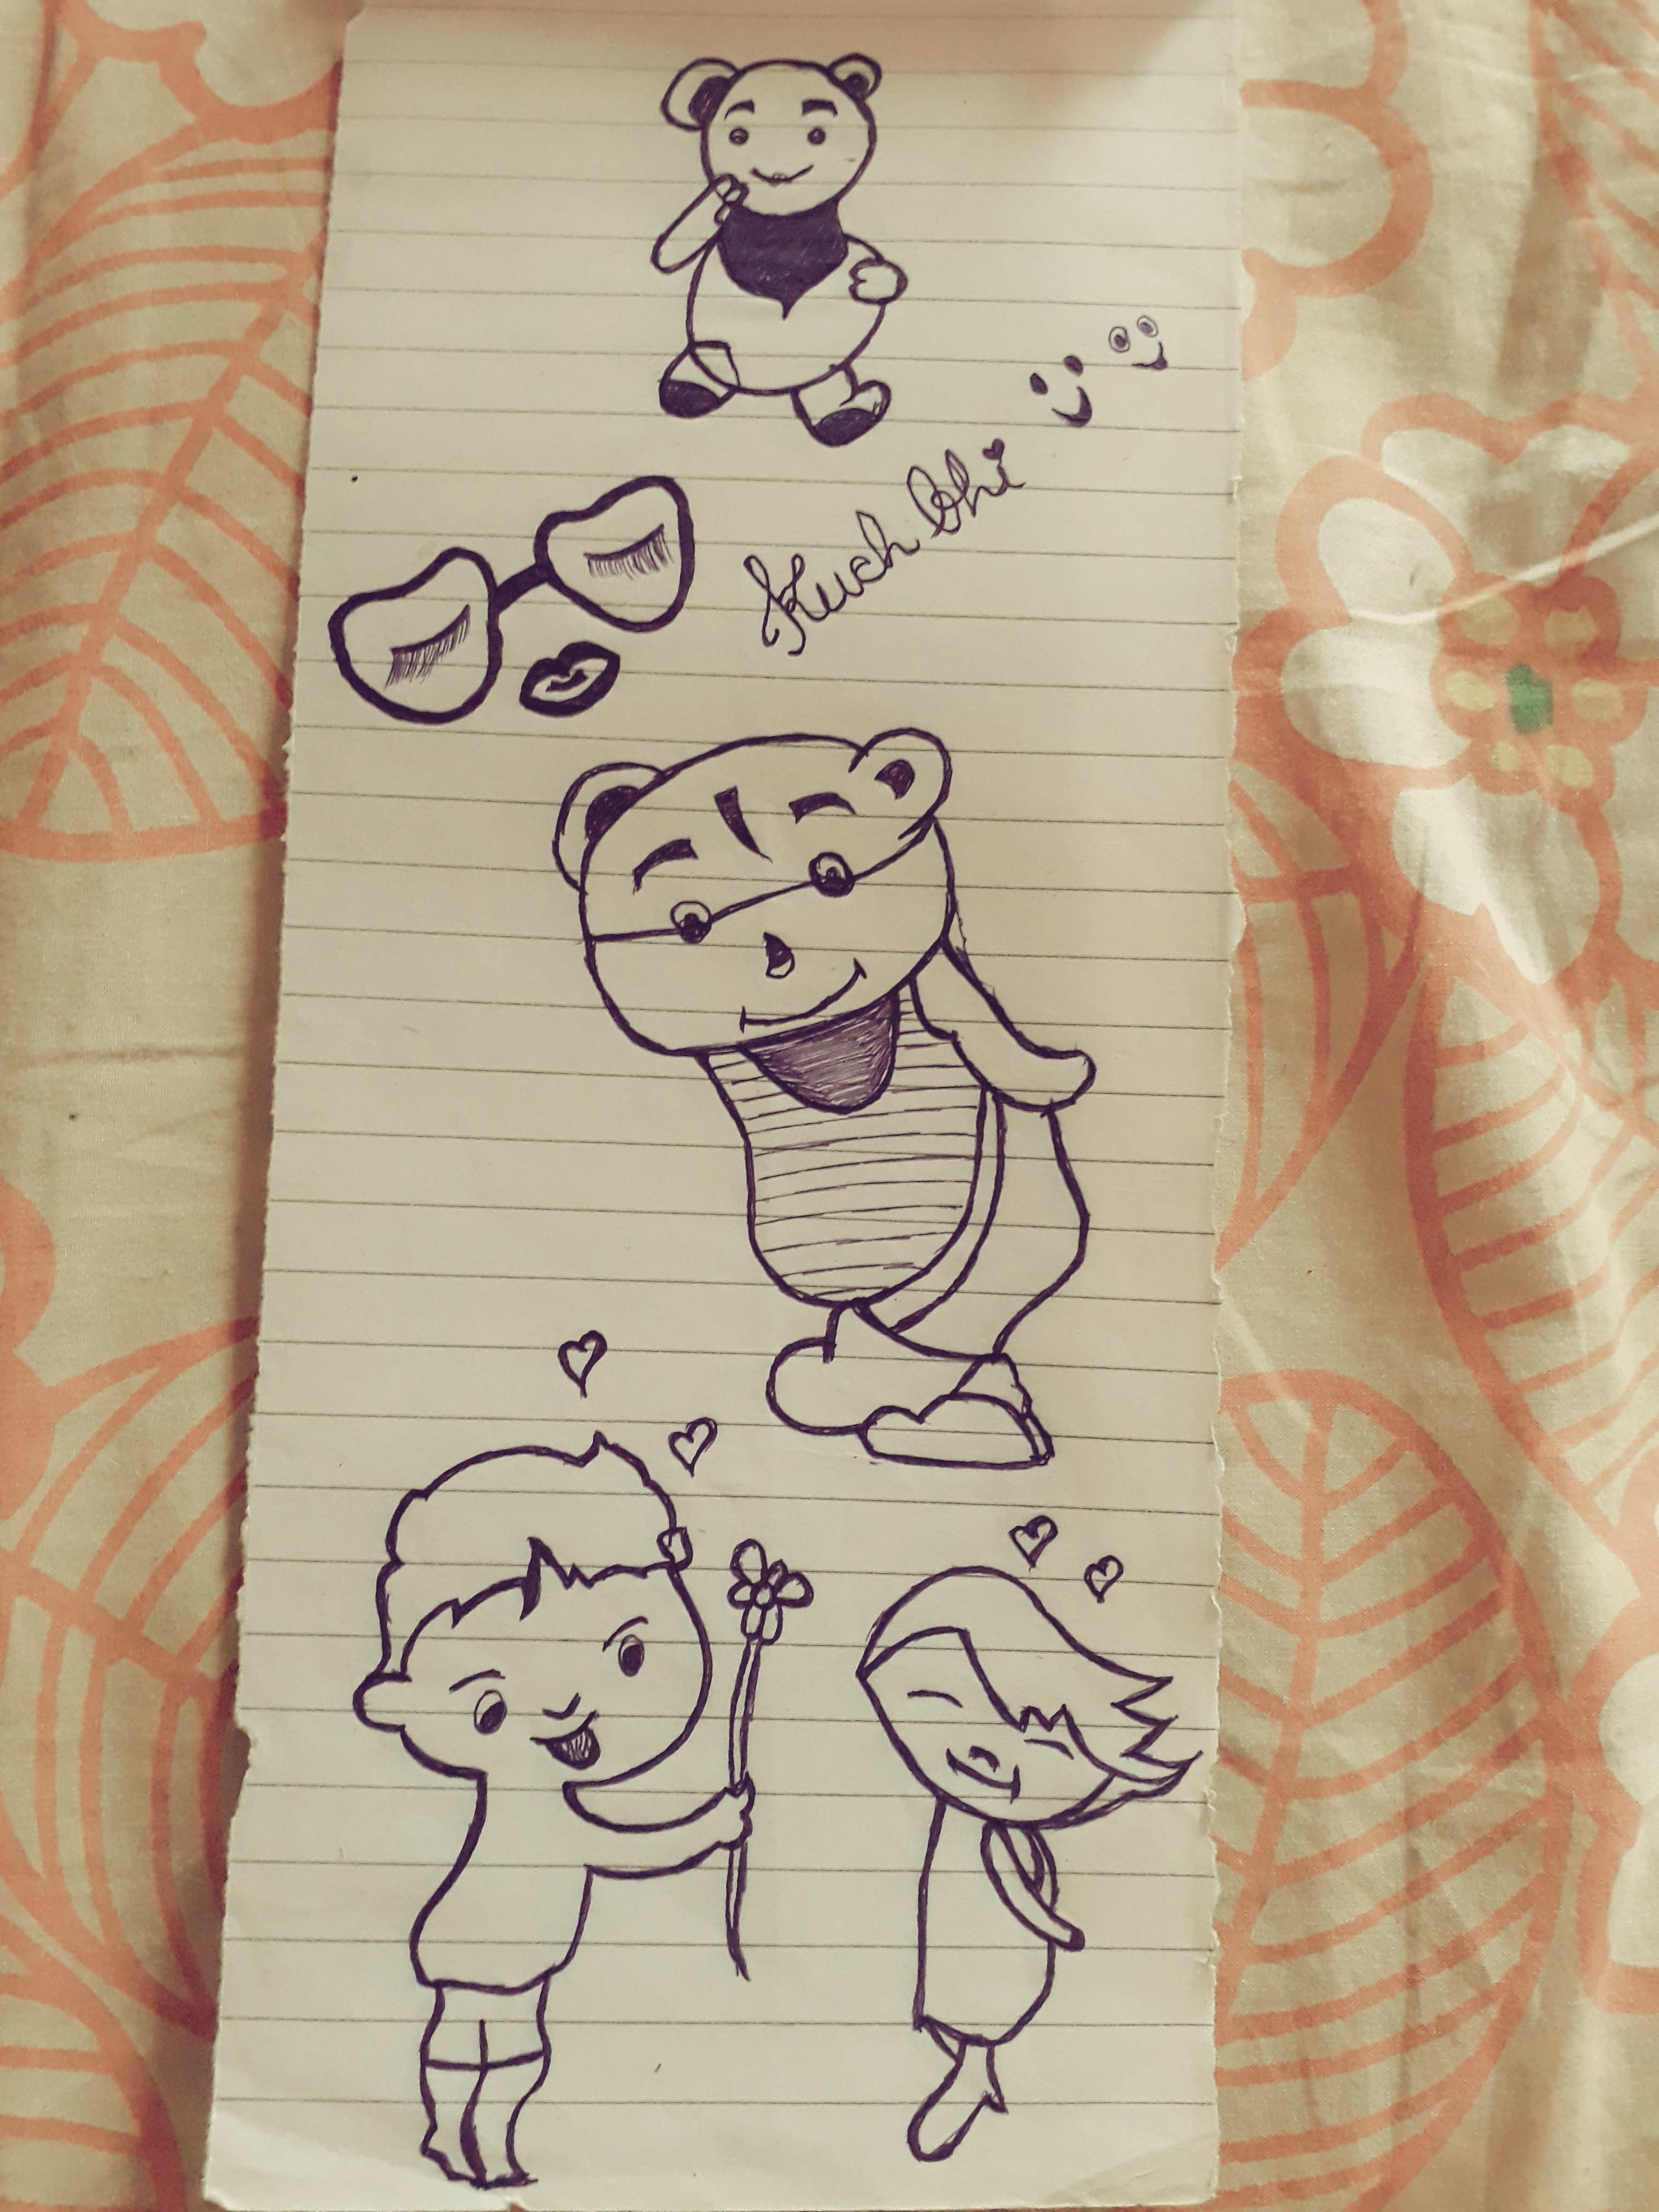 Kuch Bhi